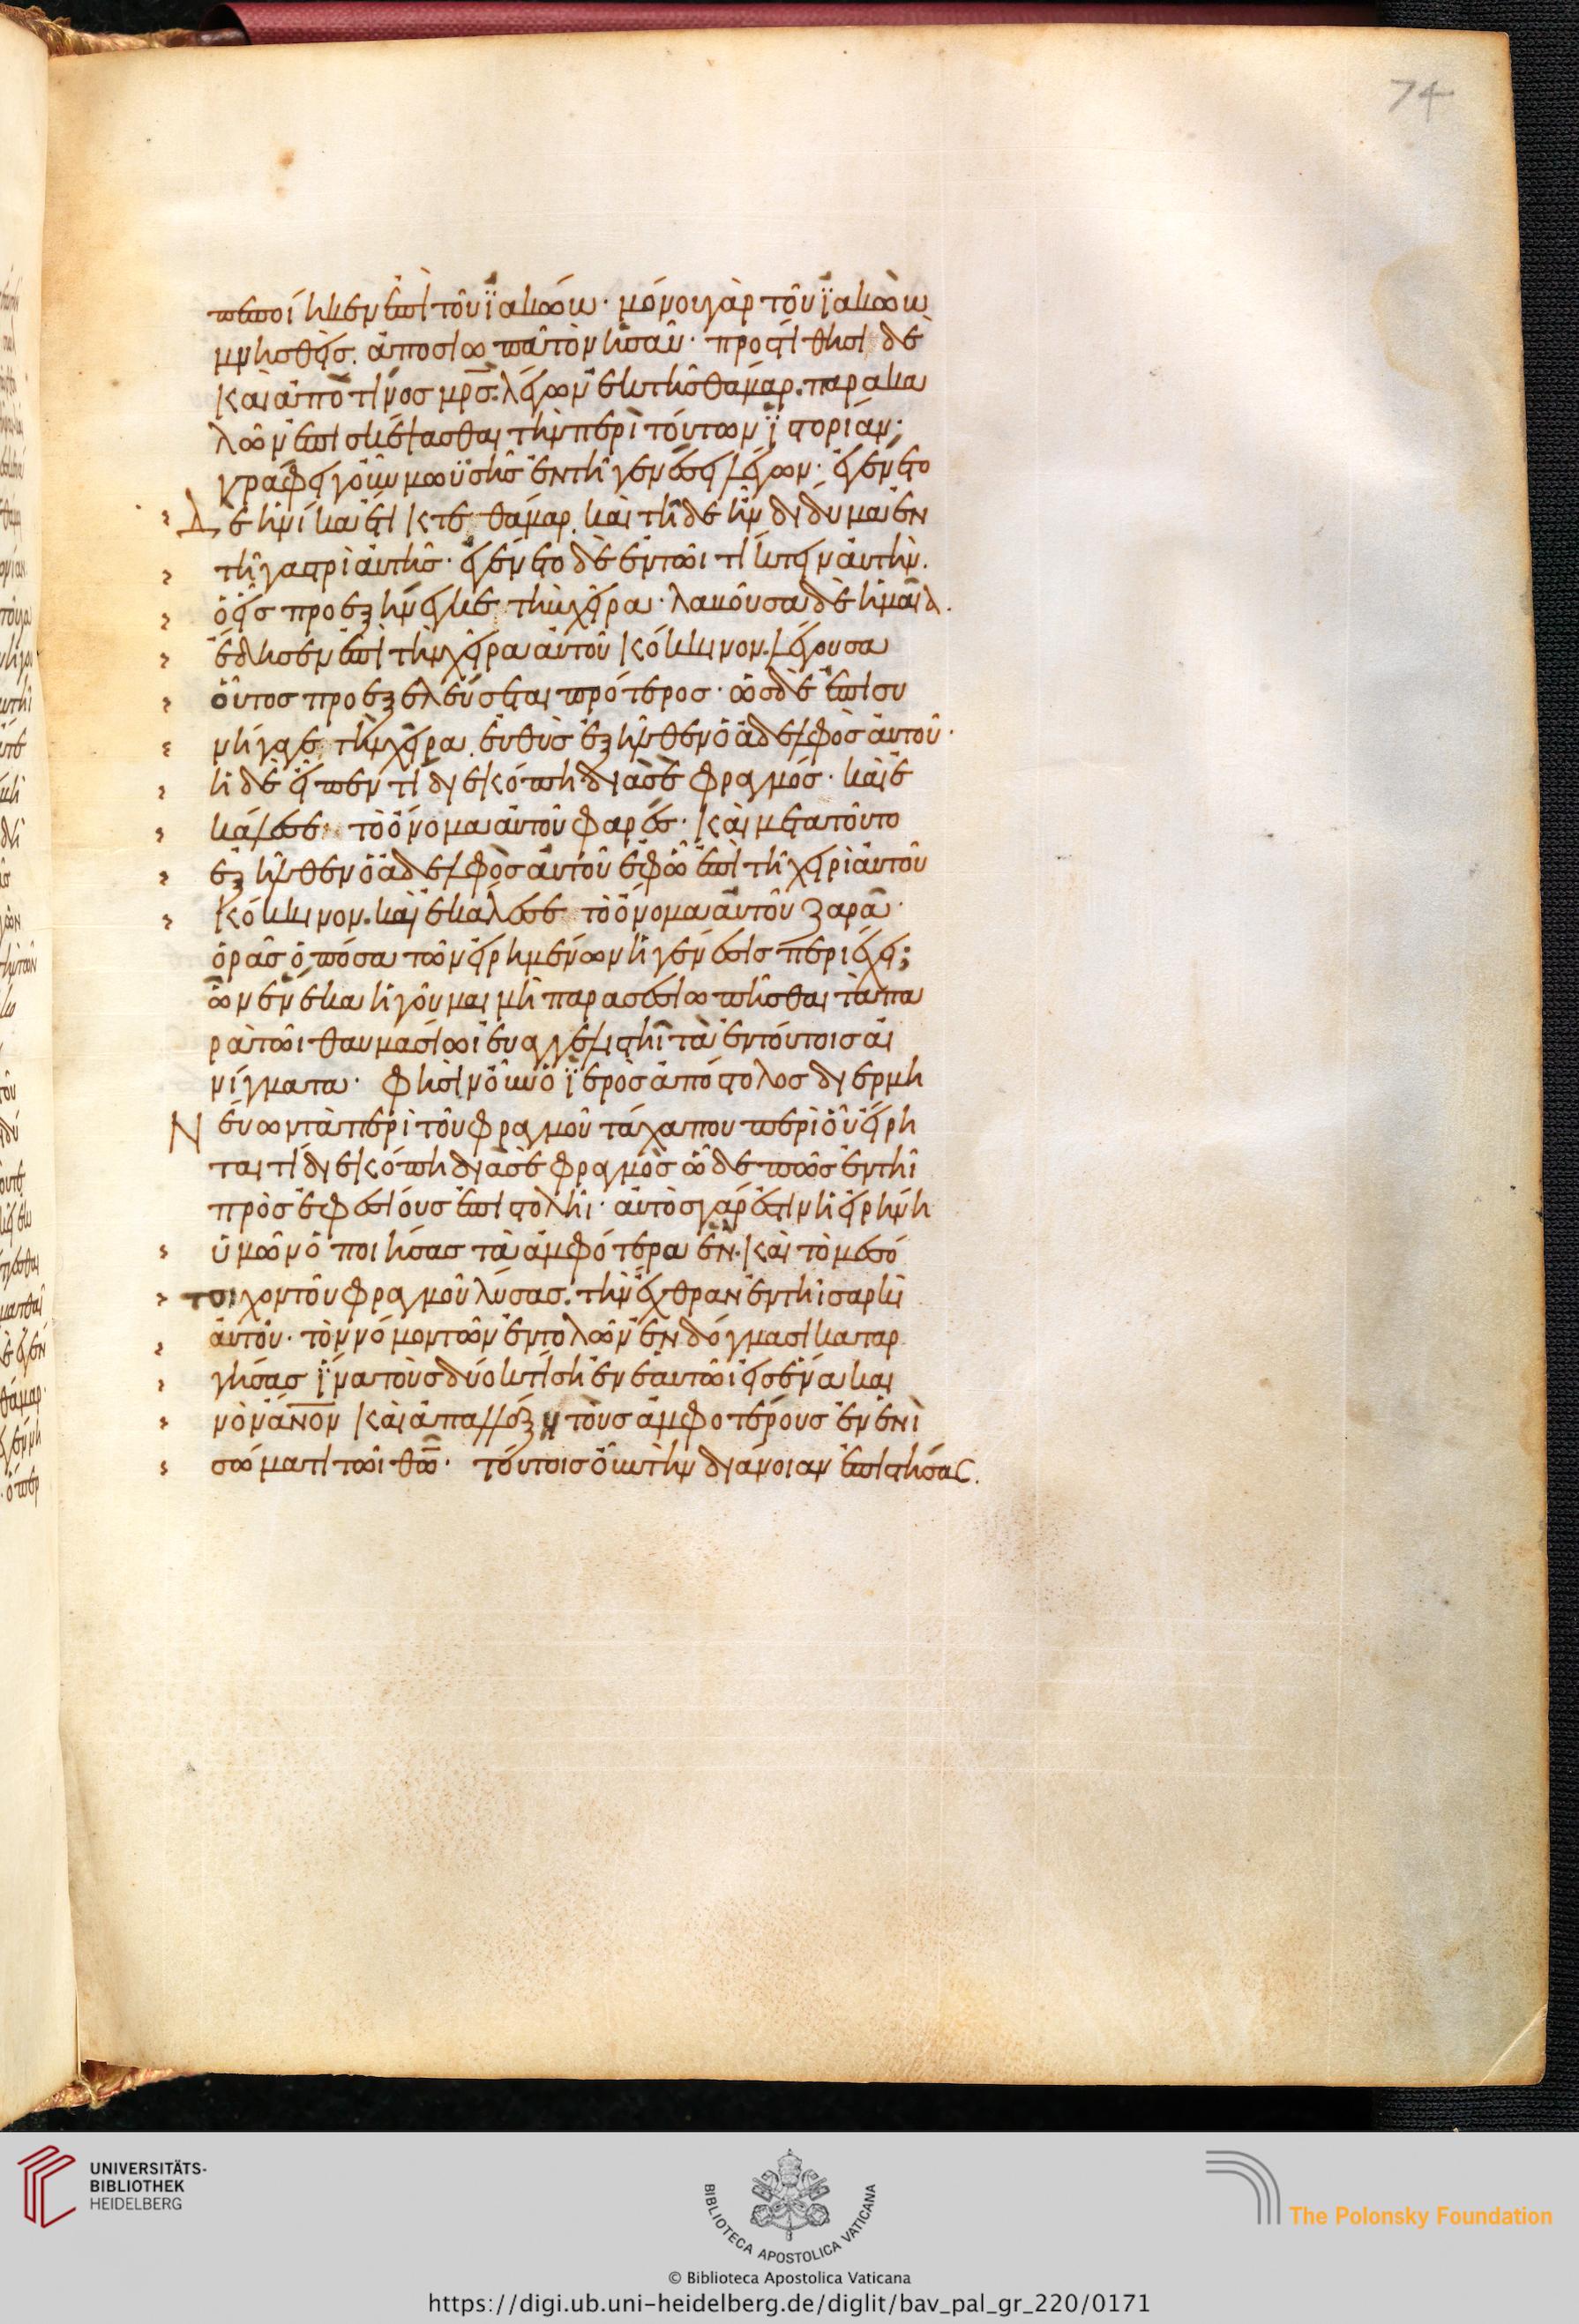 74
πεποίηκεν ἐπὶ τοῦ ϊακώβ· μόνου γὰρ τοῦ ϊακὼβ
μνησθεὶς. ἀποσιωπᾶ τὸν ἡσαῦ· προστίθησι δὲ
καὶ ἀπὸ τίνος μρς. λέγων ἐκ τῆς θαμάρ. παρακα
λῶν ἐπισκέψασθαι τὴν περὶ τούτων ϊστορίαν·
γράφει γοῦν μωϋσῆς ἐν τῆ γενέσει λέγων· ἐγένετο
δὲ ἡνίκα ἔτικτε θάμαρ. καὶ τῆδε ἦν δίδυμα ἐν
τῆ γαστρὶ αὐτῆς· ἐγένετο δὲ ἐν τῶι τίκτειν αὐτὴν.
ὁ εἷς προεξήνεγκε τὴν χεῖρα· λαβοῦσα δὲ ἡ μαῖα
ἔδησεν ἐπὶ τὴν χεῖρα αὐτοῦ κόκκινον. λέγουσα
οὗτος προεξελεύσεται πρότερος· ὡς δὲ ἐπισυ
νήγαγε τὴν χεῖρα. εὐθὺς ἐξῆλθεν ὁ ἀδελφὸς αὐτοῦ·
ἡ δὲ εἶπεν τί διεκόπη διὰ σὲ φραγμός· καὶ ἐ
κάλεσε τὸ ὄνομα αὐτοῦ φαρές· καὶ μετὰ τοῦτο
ἐξῆλθεν ὁ ἀδελφὸς αὐτοῦ ἐφ ὧ ἐπὶ τῆ χειρὶ αὐτοῦ
κόκκινον. καὶ ἐκάλεσε τὸ ὄνομα αὐτοῦ ζαρά·
ὁρᾶς ὁπόσα τῶν εἰρημένων ἡ γένεσις περιέχει;
ὧν ἕνεκα ἡγοῦμαι μὴ παρασεσιωπῆσθαι τὰ πα
ρὰ τῶι θαυμασίωι εὐαγγελιστῆ τὰ ἐν τούτοις αἰ
νίγματα· φησὶν οὖν ὁ ϊερὸς ἀπόστολος διερμη
νεύων τὰ περὶ τοῦ φραγμοῦ τάχα που περὶ οὗ εἴρη
ται τί διεκόπη διὰ σὲ φραγμὸς ὧδε πως ἐν τῆ
πρὸς ἐφεσίους ἐπιστολῆι· αὐτὸς γάρ ἐστιν ἡ εἰρήνη
ὑμῶν ὁ ποιήσας τὰ ἀμφότερα ἕν. καὶ τὸ μεσό
τοιχον τοῦ φραγμοῦ λύσας. τὴν ἔχθραν ἐν τῆι σαρκὶ
αὐτοῦ· τὸν νόμον τῶν ἐντολῶν ἐν δόγμασι καταρ
γήσας ἵνα τοὺς δύο κτίση ἐν ἑαυτῶι εἰς ἕνα και
νὸν ἄνον καὶ ἀπαλλάξη τοὺς ἀμφοτέρους ἐν ἑνὶ
σώματι τῶι θῶ· τούτοις οὖν τὴν διάνοιαν ἐπιστήσας.
UNIVERSITÄTS-
BIBLIOTHEK
HEIDELBERG
BIBLIOTECA APOSTOLICA VATICANA
The Polonsky Foundation
© Biblioteca Apostolica Vaticana
https://digi.ub.uni-heidelberg.de/diglit/bav_pal_gr_220/0171